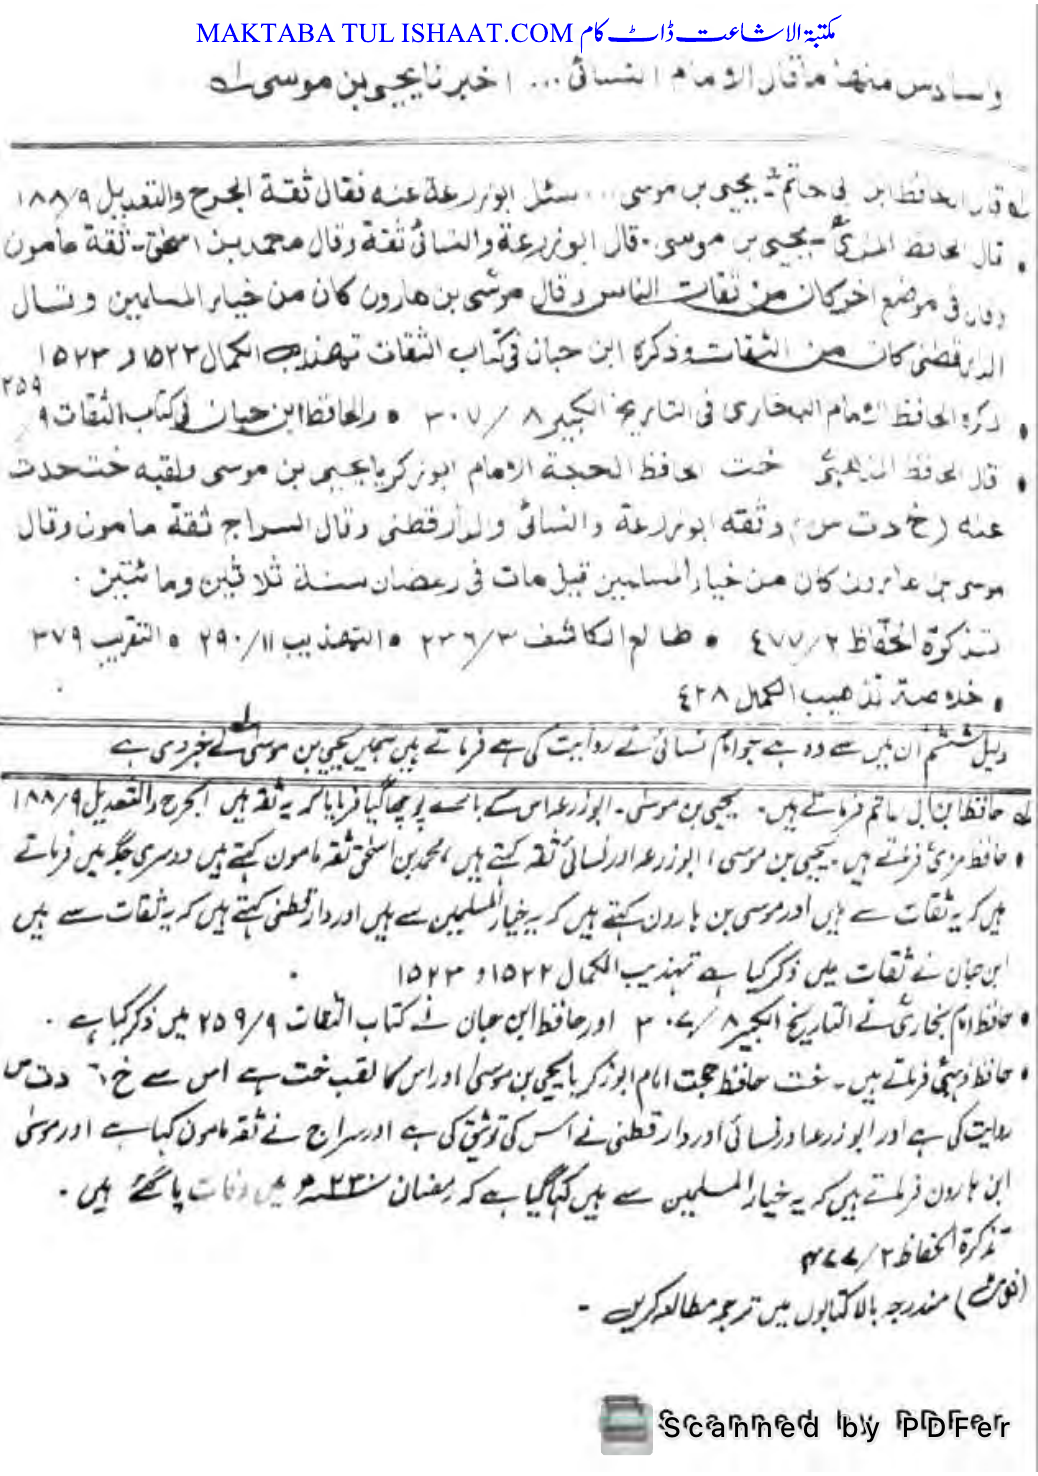 MAKTABA TUL ISHAAT.COM مکتبۃ الاشاعت ڈاٹ کام
والسادس منها ما قال الامام النسائى ... اخبرنا يحيى بن موسى لـه
لـه قال الحافظ ابن ابى حاتم يحيى بن موسى ... سئل ابو زرعة عنه فقال ثقة الجرح والتعديل ١٨٨/٩
• قال الحافظ المزىؒ - يحيى بن موسى - قال ابو زرعة والنسائى ثقة وقال محمد بن اسحق - ثقة مامون
وقال فى موضع اخر كان من ثقات الناس وقال موسى بن هارون كان من خيار المسلمين وقال
الدارقطنى كان من الثقات وذكره ابن حبان فى كتاب الثقات تهذيب الكمال ١٥٢٢ و ١٥٢٣
• ذكره الحافظ الامام البخارى فى التاريخ الكبير ٣٠٧/٨ • والحافظ ابن حبان فى كتاب الثقات ٢٥٩/٩
• قال الحافظ الذهبىؒ خت الحافظ الحجة الامام ابو زكريا يحيى بن موسى ولقبه خت حدث
عنه (خ د ت س) وثقه ابو زرعة والنسائى والدارقطنى وقال السراج ثقة مامون وقال
موسى بن هارون كان من خيار المسلمين قيل مات فى رمضان سنة ثلاثين ومائتين .
تذكرة الحفاظ ٤٧٧/٢ • طالع الكاشف ٢٣٦/٣ • التهذيب ٢٩٠/١١ • التقريب ٣٧٩
• خلاصة تذهيب الكمال ٤٢٨
دلیل ششم ان میں سے وہ ہے جو امام نسائیؒ نے روایت کی ہے فرماتے ہیں ہمیں یحییٰ بن موسیٰ لـه نے خبر دی ہے
لـه حافظ ابن ابی حاتم فرماتے ہیں - یحییٰ بن موسیٰ - ابوزرعہ اس کے بارے پوچھا گیا فرمایا کہ یہ ثقہ ہیں الجرح والتعدیل ١٨٨/٩
• حافظ مزیؒ فرماتے ہیں - یحییٰ بن موسیٰ، ابوزرعہ اور نسائی ثقہ کہتے ہیں، محمد بن اسحٰق ثقہ مامون کہتے ہیں دوسری جگہ میں فرماتے
ہیں کہ یہ ثقات سے ہیں اور موسیٰ بن ہارون کہتے ہیں کہ یہ خیار المسلمین سے ہیں اور دارقطنی کہتے ہیں کہ یہ ثقات سے ہیں
ابن حبان نے ثقات میں ذکر کیا ہے تہذیب الکمال ١٥٢٢ و ١٥٢٣
• حافظ امام بخاریؒ نے التاریخ الکبیر ٣٠٧/٨ اور حافظ ابن حبان نے کتاب الثقات ٢٥٩/٩ میں ذکر کیا ہے .
• حافظ ذہبیؒ فرماتے ہیں - خت حافظ حجت امام ابو زکریا یحییٰ بن موسیٰ اور اس کا لقب خت ہے اس سے خ د ت س
روایت کی ہے اور ابو زرعہ اور نسائی اور دارقطنی نے اس کی توثیق کی ہے اور سراج نے ثقہ مامون کہا ہے اور موسیٰ
ابن ہارون فرماتے ہیں کہ یہ خیار المسلمین سے ہیں کہا گیا ہے کہ رمضان ٢٣٠ھ میں وفات پا گئے ہیں .
تذکرۃ الحفاظ ٤٧٧/٢
(نوٹ) مندرجہ بالا کتابوں میں ترجمہ مطالعہ کریں -
Scanned by PDFer